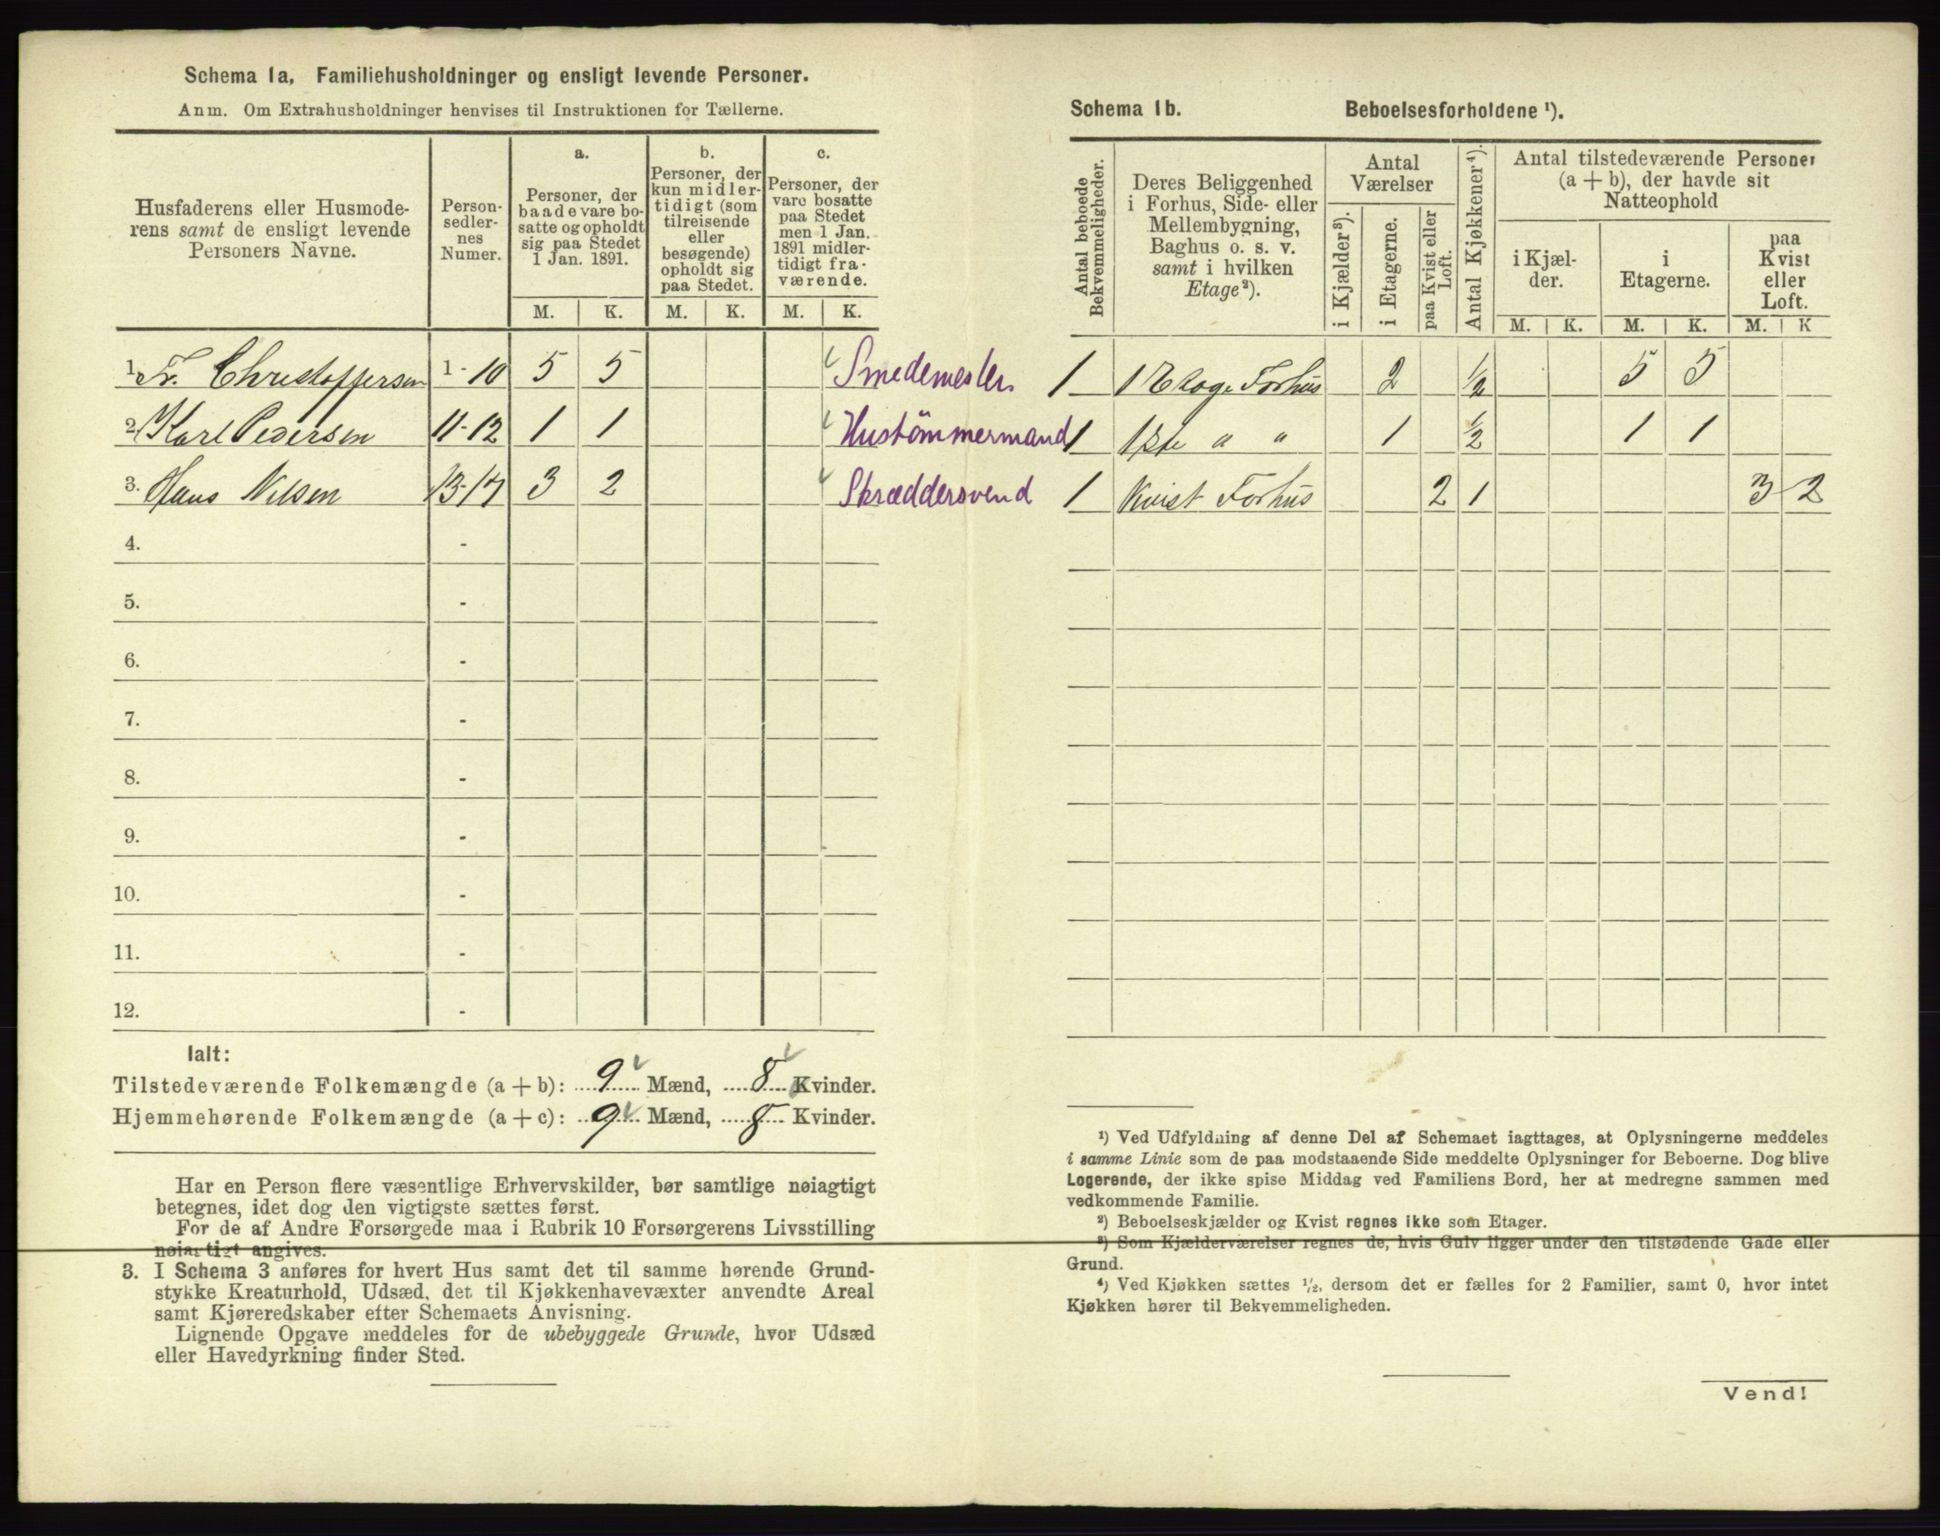 Schema 1a, Familiehusholdninger og ensligt levende Personer.
Anm. Om Extrahusholdninger henvises til Instruktionen for Tællerne.
Husfaderens eller Husmode-
rens samt de ensligt levende
Personers Navne.
Person-
sedler-
nes
Numer.
a.
Personer, der
baade vare bo-
satte og opholdt
sig paa Stedet
1 Jan. 1891.
b.
Personer, der
kun midler-
tidigt (som
tilreisende
eller
besøgende)
opholdt sig
paa Stedet.
c.
Personer, der
vare bosatte
paa Stedet
men 1 Jan.
1891 midler-
tidigt fra-
værende.
M. K. M. K. M. K.
1. Fr. Christoffersen 1-10 5 5 Smedemester
2. Karl Pedersen 11-12 1 1 Hustömmermand
3. Hans Nilsen 13-17 3 2 Skræddersvend
4. -
5. -
6. -
7. -
8. -
9. -
10. -
11. -
12. -
Ialt:
Tilstedeværende Folkemængde (a + b): 9 Mænd, 8 Kvinder.
Hjemmehørende Folkemængde (a + c): 9 Mænd, 8 Kvinder.
Har en Person flere væsentlige Erhvervskilder, bør samtlige nøiagtigt
betegnes, idet dog den vigtigste sættes først.
For de af Andre Forsørgede maa i Rubrik 10 Forsørgerens Livsstilling
nøiagtigt angives.
3. I Schema 3 anføres for hvert Hus samt det til samme hørende Grund-
stykke Kreaturhold, Udsæd, det til Kjøkkenhavevæxter anvendte Areal
samt Kjøreredskaber efter Schemaets Anvisning.
Lignende Opgave meddeles for de ubebyggede Grunde, hvor Udsæd
eller Havedyrkning finder Sted.
Schema 1b. Beboelsesforholdene ¹).
Antal beboede
Bekvemmeligheder.
Deres Beliggenhed
i Forhus, Side- eller
Mellembygning,
Baghus o. s. v.
samt i hvilken
Etage²).
Antal
Værelser
i Kjælder³).
i Etagerne.
paa Kvist eller
Loft.
Antal Kjøkkener⁴).
Antal tilstedeværende Personer
(a + b), der havde sit
Natteophold
i Kjæl-
der.
i
Etagerne.
paa
Kvist
eller
Loft.
M. K. M. K. M. K
1 1 Etage Forhus 2 ½ 5 5
1 1ste " " 1 ½ 1 1
1 Kvist Forhus 2 1 3 2
¹) Ved Udfyldning af denne Del af Schemaet iagttages, at Oplysningerne meddeles
i samme Linie som de paa modstaaende Side meddelte Oplysninger for Beboerne. Dog blive
Logerende, der ikke spise Middag ved Familiens Bord, her at medregne sammen med
vedkommende Familie.
²) Beboelseskjælder og Kvist regnes ikke som Etager.
³) Som Kjælderværelser regnes de, hvis Gulv ligger under den tilstødende Gade eller
Grund.
⁴) Ved Kjøkken sættes ½, dersom det er fælles for 2 Familier, samt 0, hvor intet
Kjøkken hører til Bekvemmeligheden.
Vend!